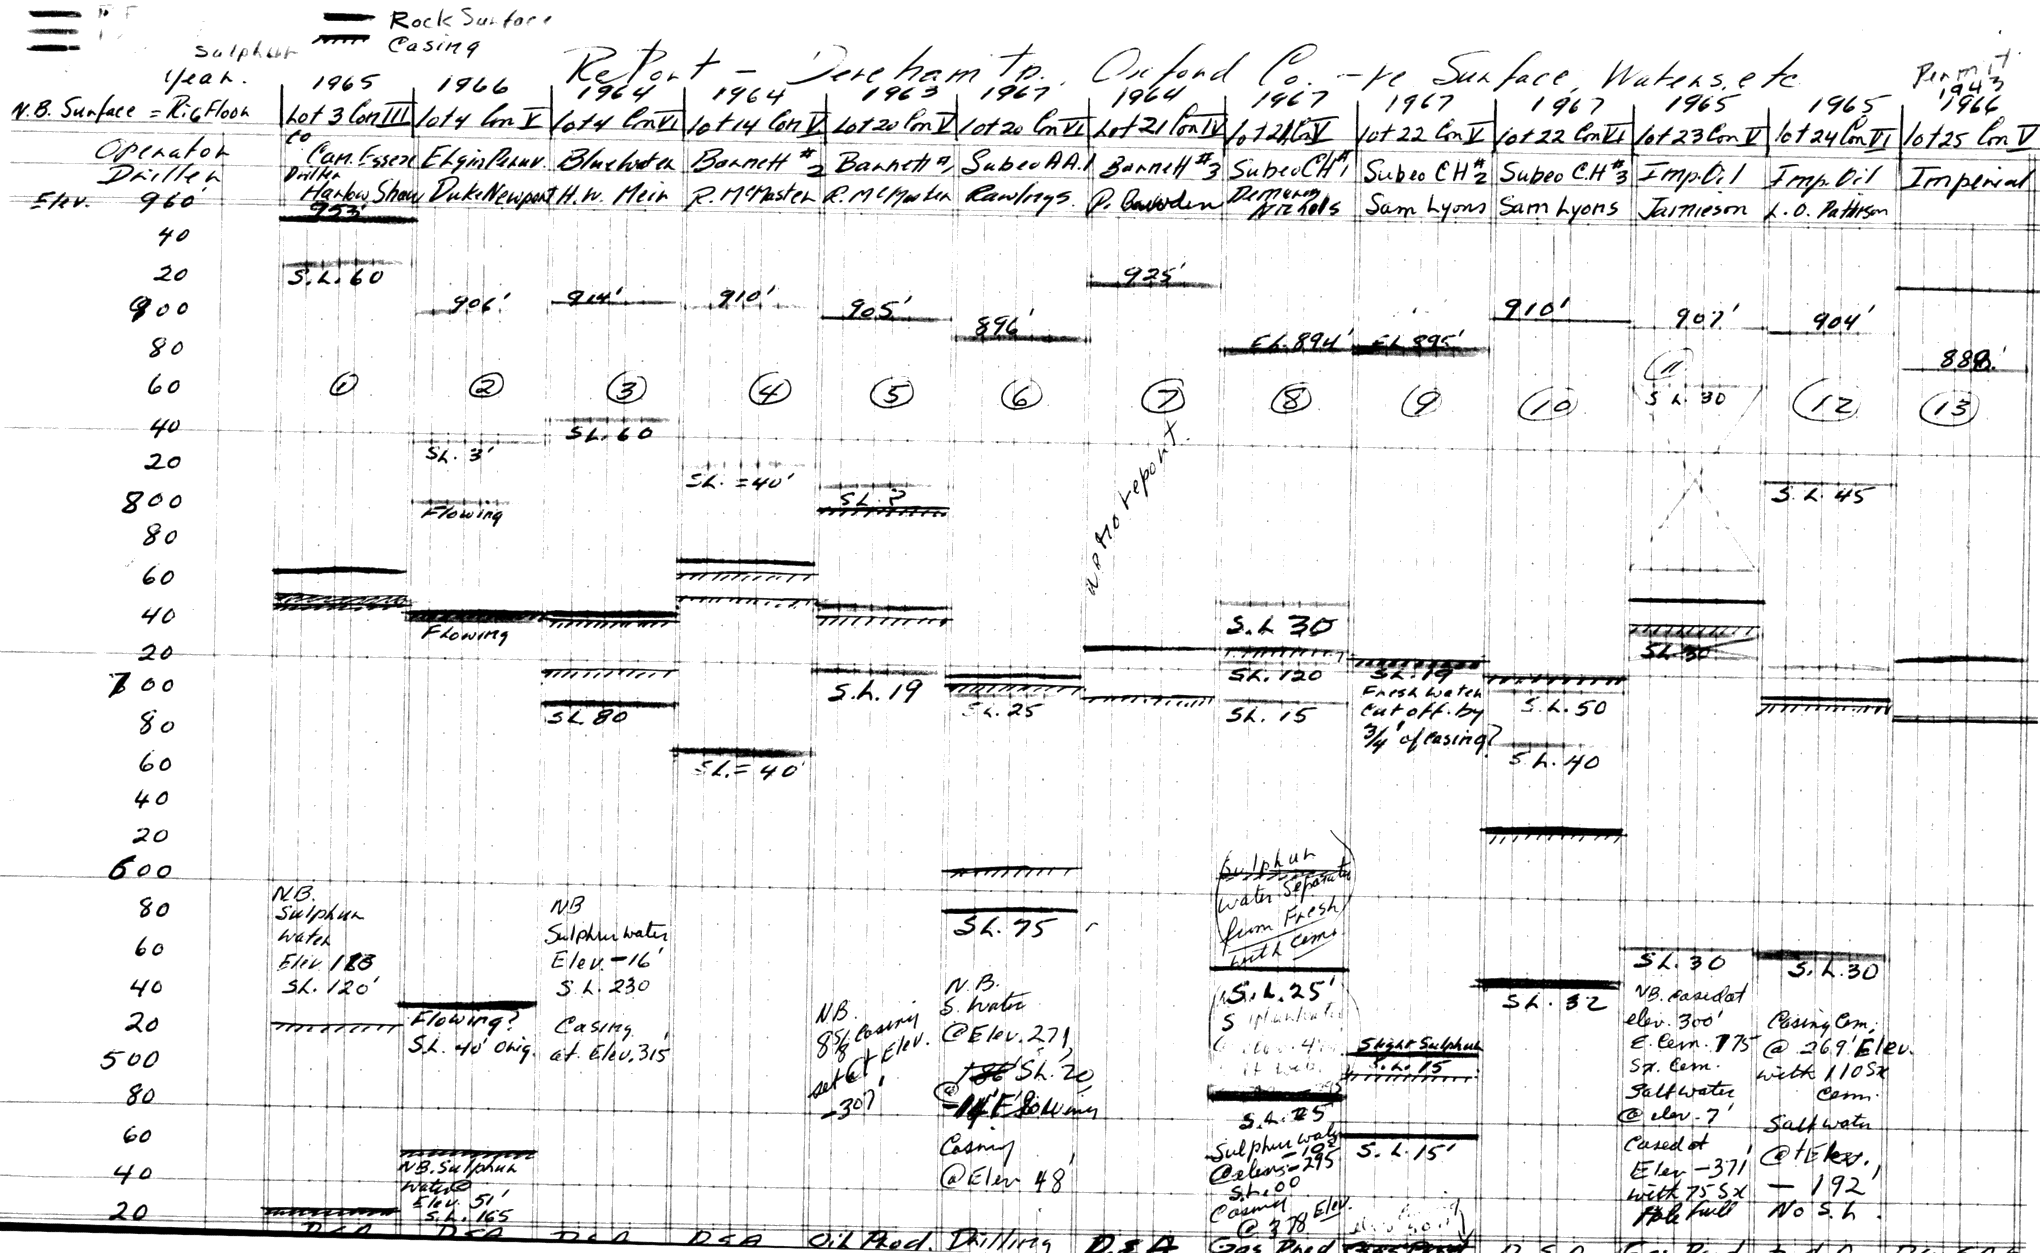 Rock Surface
Casing
Sulphur
Report - Dereham Tp. Oxford Co. - re Surface, Waters, etc
Permit
1943
Year. 1965 1966 1964 1964 1963 1967 1964 1967 1967 1967 1965 1965 1966
N.B. Surface = Rig Floor Lot 3 Con III Lot 4 Con V Lot 4 Con VI Lot 14 Con V Lot 20 Con V Lot 20 Con VI Lot 21 Con IV Lot 21 Con V Lot 22 Con V Lot 22 Con VI Lot 23 Con V Lot 24 Con VI Lot 25 Con V
Co
Operator Cam. Essex Elgin Bluewater Barnett #2 Barnett #1 Subeo A.A.1 Barnett #3 Subeo CH #1 Subeo CH #2 Subeo C.H #3 Imp. Oil Imp. Oil Imperial
Driller Driller Harlow Shaw Duke Newport H.W. Mein R. McMaster R. McMaster Rawlings. P. Nichols Sam Lyons Sam Lyons Jamieson L.O. Pattison
Elev. 960'
953'
40
20 S.L. 60 925'
900 906' 914' 910' 905' 896' 910' 907' 904'
80 EL. 894' EL 895' 888'
60 1 2 3 4 5 6 7 8 9 10 11 12 13
S.L. 30
40 SL. 3' SL. 60
20 SL. = 40'
800 Flowing SL. ? S.L. 45
80
60
40 Flowing S.L 30
20 SL 30
700 S.L. 19 SL. 120 SL. 19
SL 80 SL. 25 SL. 15 S.L. 50
Fresh water
cut off by
3/4' of casing?
80
60 SL. = 40' S.L. 40
40
20
600
No report.
N.B.
Sulphur
water
Elev.
SL. 120'
Flowing?
S.L. 40' Orig.
N.B. Sulphur
water @
Elev. 51'
S.L. 165
NB
Sulphur water
Elev. -16'
S.L. 230
Casing
at Elev. 315'
N.B.
8 5/8 Casing
set at Elev.
-307'
SL. 75
N.B.
S. Water
@ Elev. 271,
SL. 20,
@
Flowing
Casing
@ Elev 48'
Sulphur
water Separated
from Fresh
with Cem.
S.L. 25'
Sulphur water
@ elev -295
S.L.
Casing
@ 378 Elev.
Slight Sulphur
S.L. 15
S.L. 15'
SL. 32
SL. 30
NB. cased at
elev. 300'
Sx. Cem.
Salt water
@ elev. 7'
Cased at
Elev -371'
with 75 Sx
Hole Full
S.L. 30
Casing Cem.
@ 269' Elev.
with 110 Sx
Cem.
Salt water
@
- 192'
No S.L.
80
60
40
20
500
80
60
40
20
D&A D&A D&A D&A Oil Prod. Drilling D&A Gas Prod